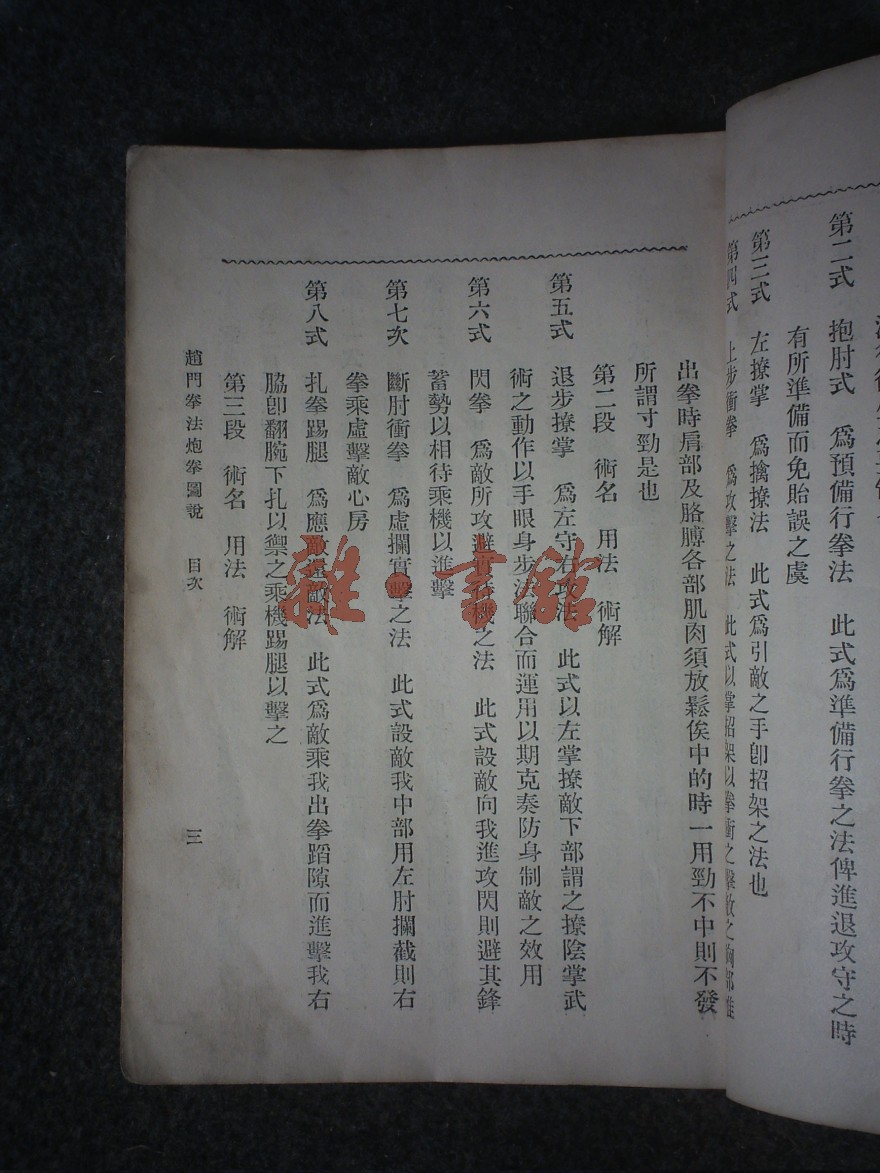 第二式　抱肘式　爲預備行拳之法　此式爲準備行拳之法俾進退攻守之時
有所準備而免貽誤之虞
第三式　左撩掌　爲擒撩法　此式爲引敵之手卽招架之法也
第四式　上步衝拳　爲攻擊之法　此式以掌招架以拳衝之擊敵之胸部
出拳時肩部及胳膊各部肌肉須放鬆俟中的時一用勁不中則不發
所謂寸勁是也
第二段　術名　用法　術解
第五式　退步撩掌　爲左守右攻法　此式以左掌撩敵下部謂之撩陰掌武
術之動作以手眼身步法聯合而運用以期克奏防身制敵之效用
第六式　閃拳　爲敵所攻避實待機之法　此式設敵向我進攻閃則避其鋒
蓄勢以相待乘機以進擊
第七次　斷肘衝拳　爲虛攔實擊之法　此式設敵我中部用左肘攔截則右
拳乘虛擊敵心房
第八式　扎拳踢腿　爲應敵還敵法　此式爲敵乘我出拳蹈隙而進擊我右
脇卽翻腕下扎以禦之乘機踢腿以擊之
第三段　術名　用法　術解
趙門拳法炮拳圖說　目次
三
雜·書館